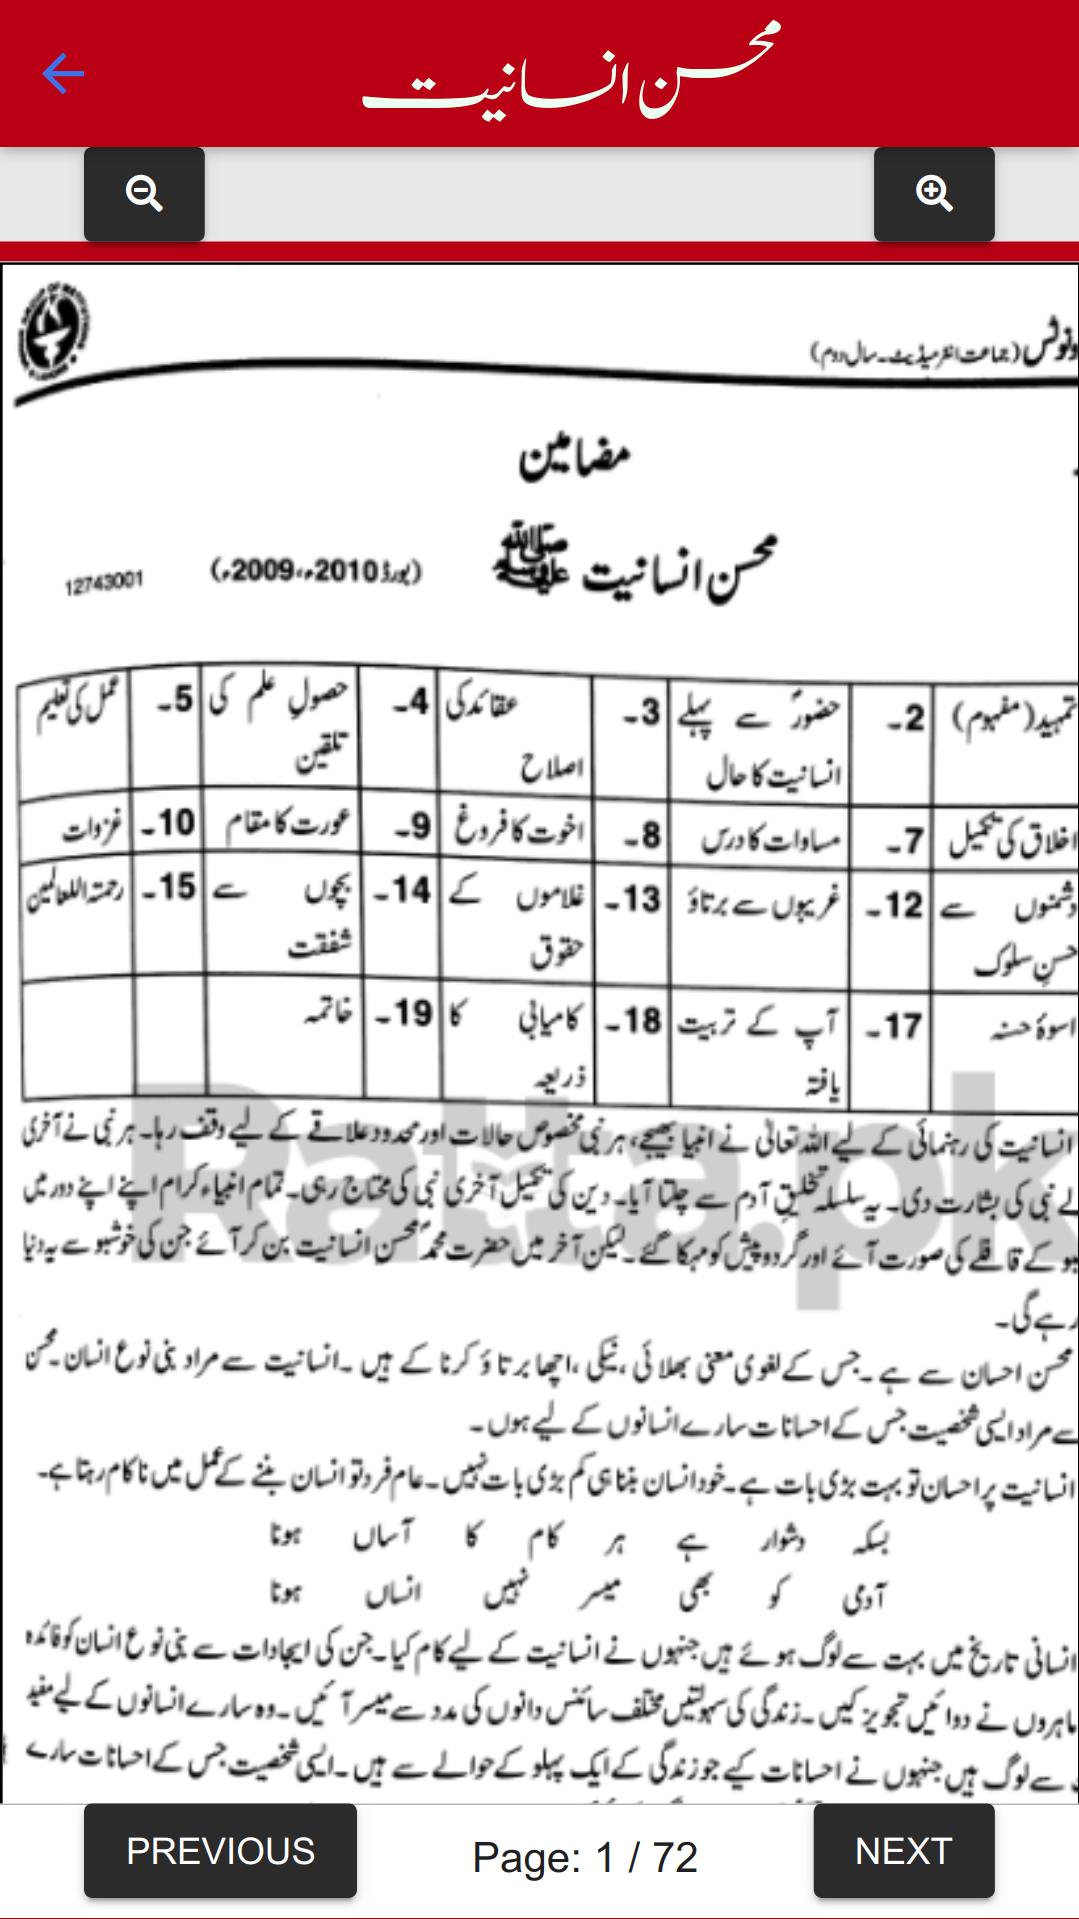 محسن انسانیت
نوٹس (جماعت انٹرمیڈیٹ۔سال دوم)
مضامین
محسن انسانیت ﷺ (بورڈ 2010ء، 2009ء) 12743001
تمہید (مفہوم) 2۔ حضورؐ سے پہلے انسانیت کا حال 3۔ عقائد کی اصلاح 4۔ حصولِ علم کی تلقین 5۔ عمل کی تعلیم
اخلاق کی تکمیل 7۔ مساوات کا درس 8۔ اخوت کا فروغ 9۔ عورت کا مقام 10۔ غزوات
دشمنوں سے حسنِ سلوک 12۔ غریبوں سے برتاؤ 13۔ غلاموں کے حقوق 14۔ بچوں سے شفقت 15۔ رحمۃ اللعالمین
اسوۂ حسنہ 17۔ آپ کے تربیت یافتہ 18۔ کامیابی کا ذریعہ 19۔ خاتمہ
Ratta.pk
انسانیت کی رہنمائی کے لیے اللہ تعالیٰ نے انبیا بھیجے، ہر نبی مخصوص حالات اور محدود علاقے کے لیے وقف رہا۔ ہر نبی نے آخری
نبی کی بشارت دی۔ یہ سلسلہ تخلیقِ آدم سے چلتا آیا۔ دین کی تکمیل آخری نبی کی محتاج رہی۔ تمام انبیاء کرام اپنے اپنے دور میں
کے قافلے کی صورت آئے اور گرد و پیش کو مہکا گئے۔ لیکن آخر میں حضرت محمدؐ محسن انسانیت بن کر آئے جن کی خوشبو سے یہ دنیا
رہے گی۔
محسن احسان سے ہے۔ جس کے لغوی معنی بھلائی، نیکی، اچھا برتاؤ کرنا کے ہیں۔ انسانیت سے مراد بنی نوع انسان۔ محسن
سے مراد ایسی شخصیت جس کے احسانات سارے انسانوں کے لیے ہوں۔
انسانیت پر احسان تو بہت بڑی بات ہے۔ خود انسان بننا ہی کم بڑی بات نہیں۔ عام فرد تو انسان بننے کے عمل میں ناکام رہتا ہے۔
بسکہ دشوار ہے ہر کام کا آساں ہونا
آدمی کو بھی میسر نہیں انساں ہونا
انسانی تاریخ میں بہت سے لوگ ہوئے ہیں جنہوں نے انسانیت کے لیے کام کیا۔ جن کی ایجادات سے بنی نوع انسان کو فائدہ
ماہروں نے دوائیں تجویز کیں۔ زندگی کی سہولتیں مختلف سائنس دانوں کی مدد سے میسر آئیں۔ وہ سارے انسانوں کے لیے مفید
سے لوگ ہیں جنہوں نے احسانات کیے جو زندگی کے ایک پہلو کے حوالے سے ہیں۔ ایسی شخصیت جس کے احسانات سارے
PREVIOUS Page: 1 / 72 NEXT